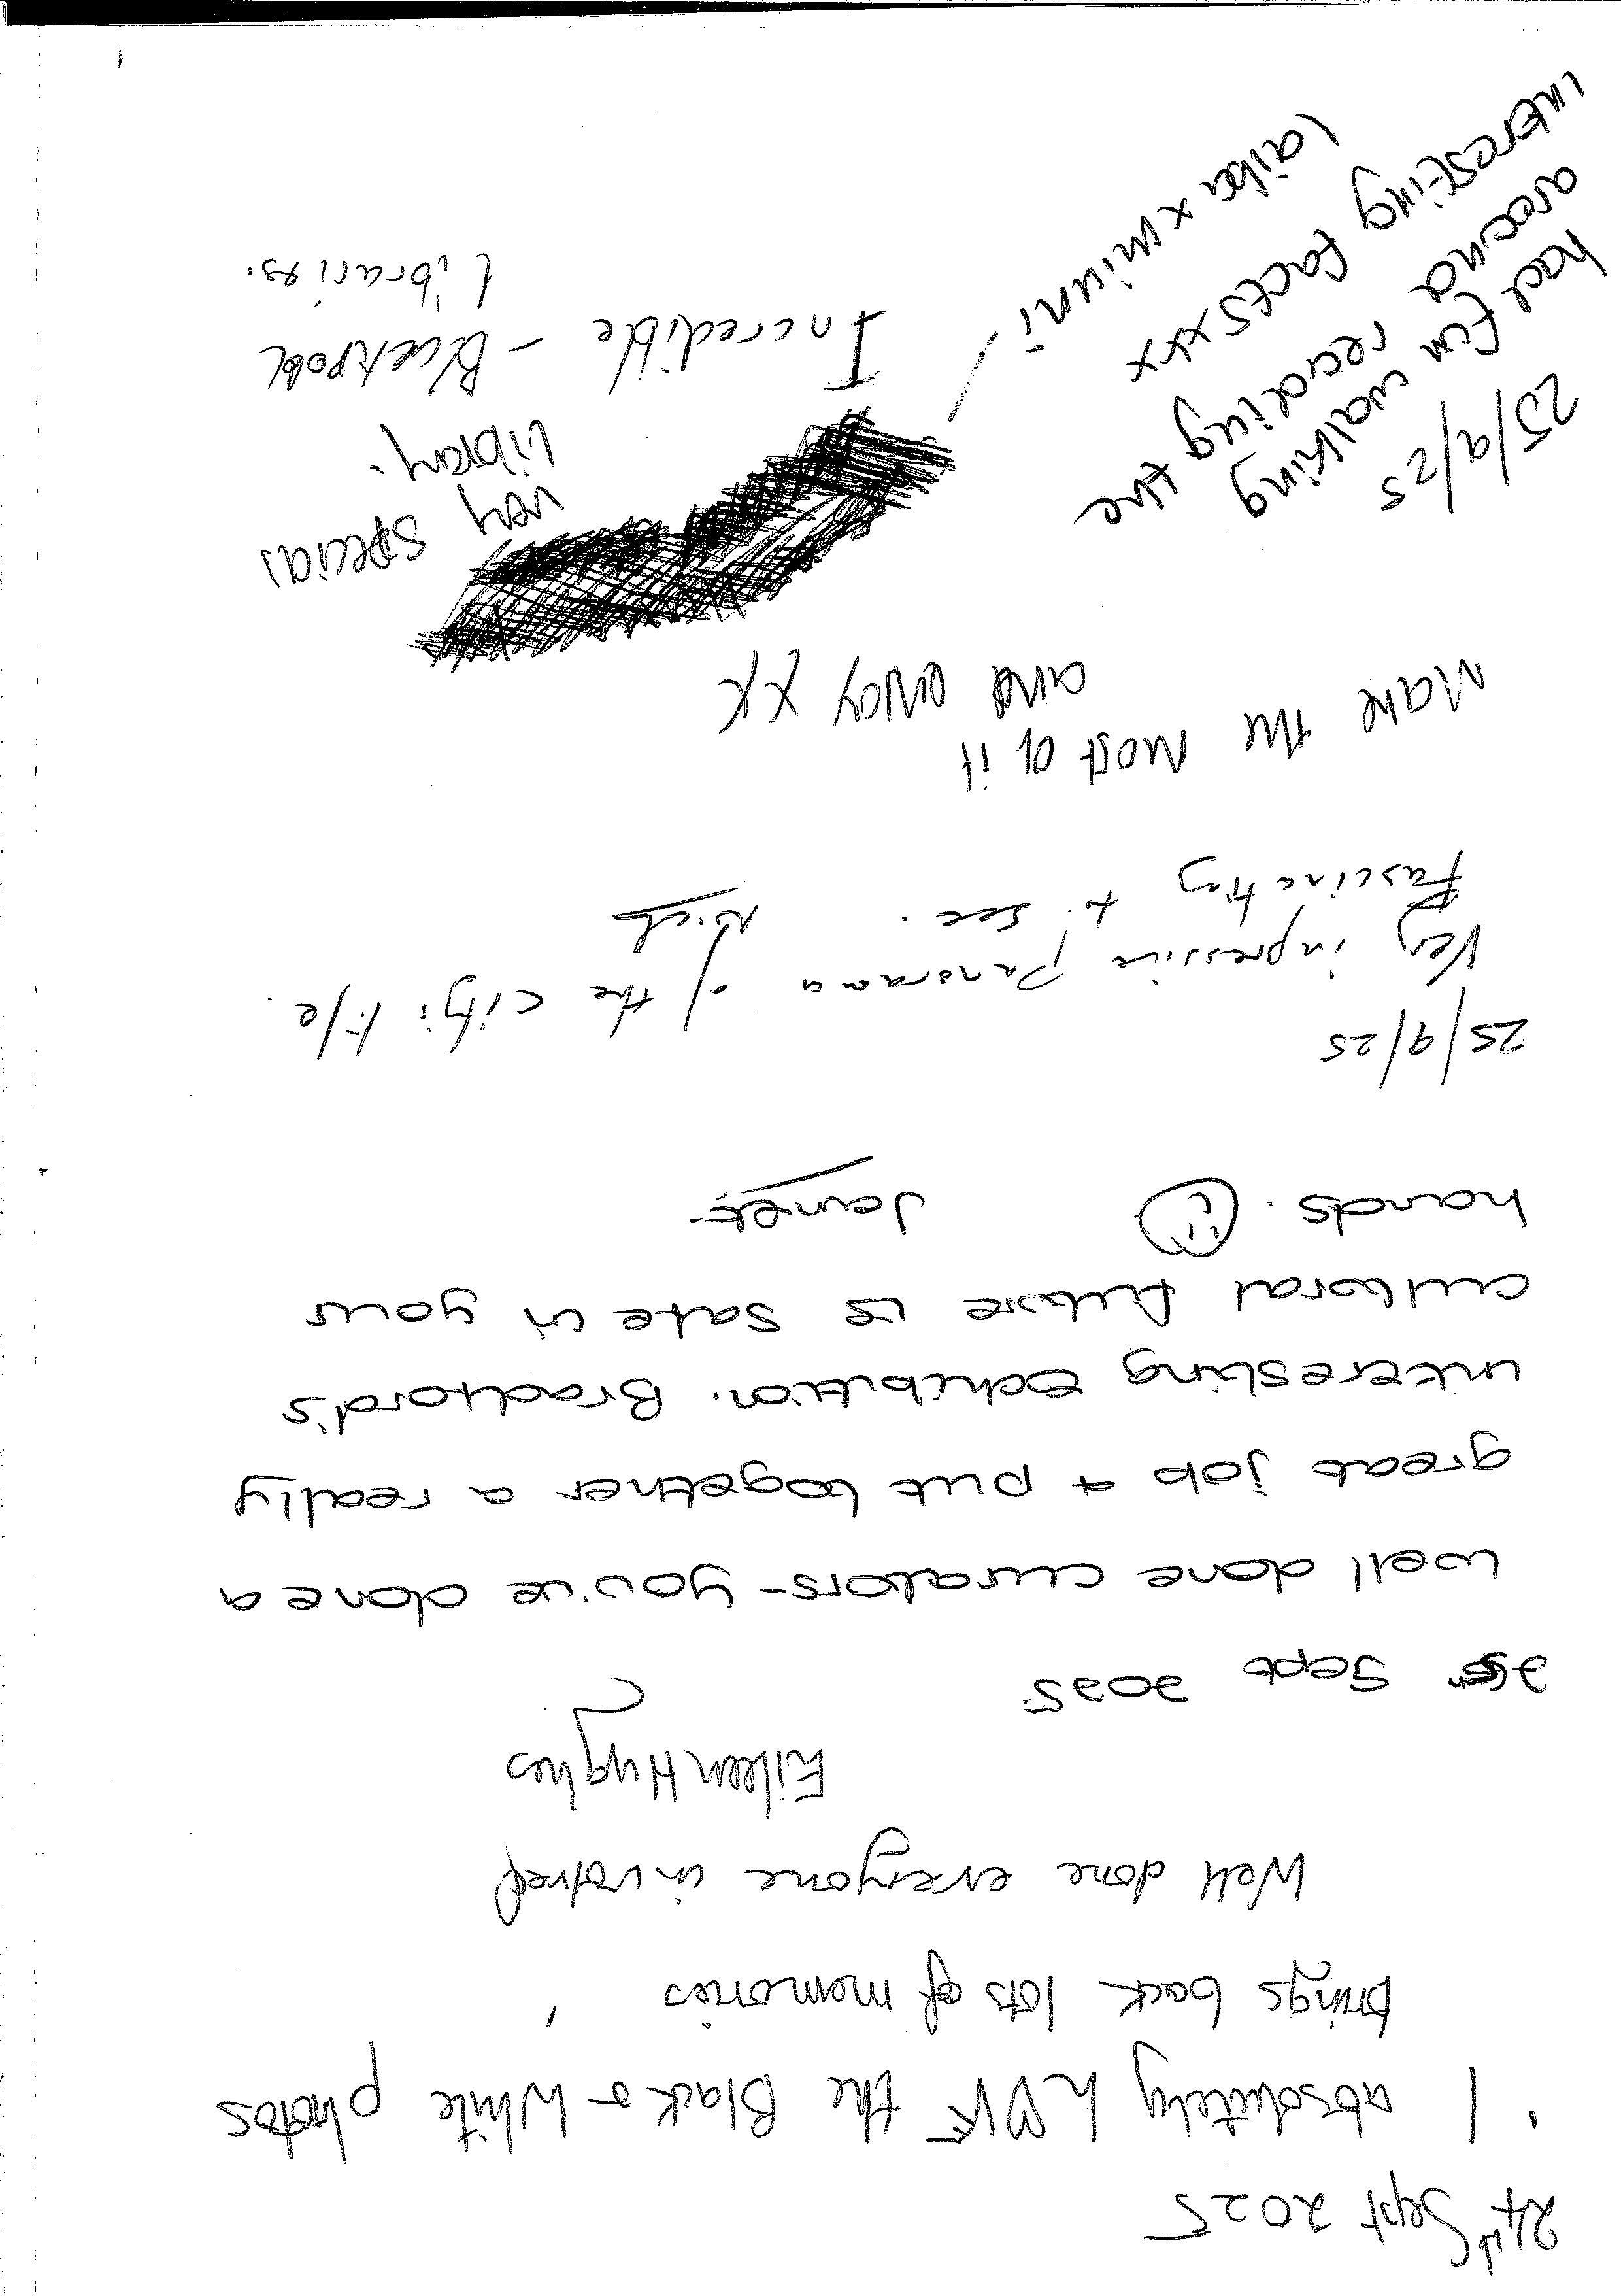 24th Sept 2025
I absolutely LOVE the Black & White photos
brings back lots of memories
Well done everyone involved
Eileen Hughes
25th Sept 2025
Well done curators - you've done a
great job + put together a really
interesting exhibition. Bradford's
cultural future is safe in your
hands. Janet
25/9/25
Very impressive Panorama of the city: life.
Fascinating to see. Nick
Make the most of it
and enjoy xx
very special
Library.
Incredible - Blackpool
Libraries.
25/9/25
had fun walking
arocund reading the
interesting facts xxx
Laiba x Minni